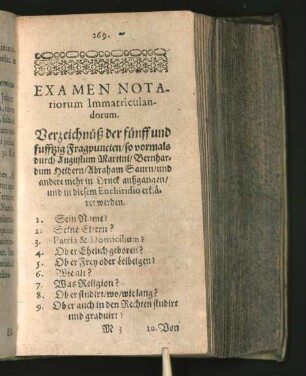 269.
EXAMEN NOTA-
riorum Immatriculan-
dorum.
Verzeichnüß der fünff und
fufftzig Fragpuncten/ so vormals
durch Augustum Martini/ Bernhar-
dum Heidern/ Abraham Saurn/ und
andere mehr in Druck außgangen/
und in diesem Enchiridio erklä-
ret werden.
1. Sein Name?
2. Seine Eltern?
3. Patria & Domicilium?
4. Ob er Ehelich geboren?
5. Ob er Frey oder Leibeigen?
6. Wie alt?
7. Was Religion?
8. Ob er studirt/ wo/ wie lang?
9. Ob er auch in den Rechten studirt
und graduirt?
M 3 10. Von